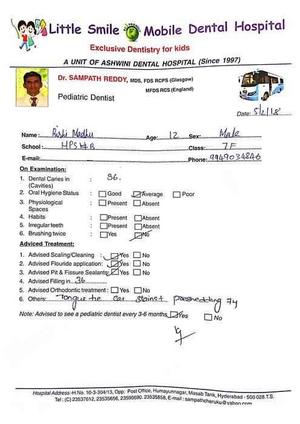 Little Smile Mobile Dental Hospital
Exclusive Dentistry for kids
A UNIT OF ASHWINI DENTAL HOSPITAL (Since 1997)
Dr. SAMPATH REDDY, MDS, FDS RCPS (Glasgow)
MFDS RCS (England)
Pediatric Dentist
Date: 5/2/18
Name: Rishi Madhu Age: 12 Sex: Male
School: HPS Class: 7F
E-mail: Phone: 9949034846
On Examination:
1. Dental Caries in (Cavities) 36.
2. Oral Hygiene Status : Good Average Poor
3. Physiological Spaces : Present Absent
4. Habits : Present Absent
5. Irregular teeth : Present Absent
6. Brushing twice : Yes No
Adviced Treatment:
1. Advised Scaling/Cleaning : Yes No
2. Advised Flouride application: Yes No
3. Advised Pit & Fissure Sealants: Yes No
4. Advised Filling in 36
5. Advised Orthodontic treatment : Yes No
6. Others Tongue tie
Note: Advised to see a pediatric dentist every 3-6 months. Yes No
Hospital Address: H.No. 10-3-304/13, Opp: Post Office, Humayunnagar, Masab Tank, Hyderabad - 500 028 T.S.